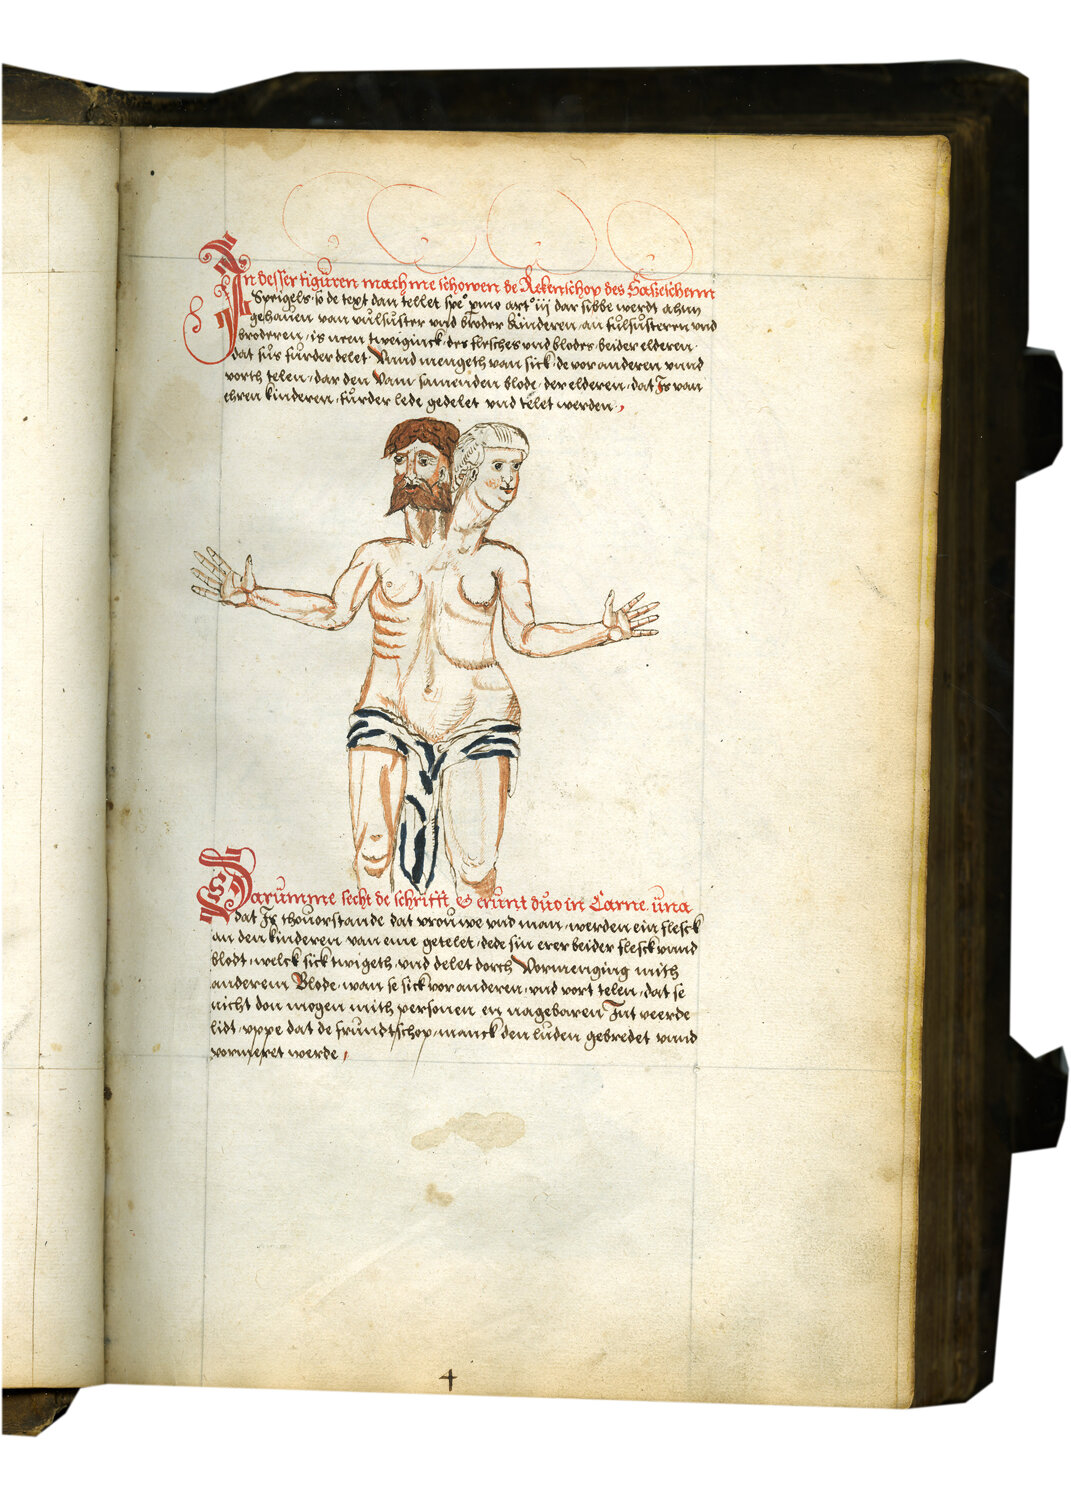 In desser figuren mach me schowen de Rekenschop des Sasseschenn
Speigels so de text dan tellet spe° pmo art° iij dar sibbe werdt ahnn
gehauen van vulsuster vnd broder kinderen an fulsusteren vnd
broderen, is nein tweiginck des flesches vnd blodes beider elderen
dat sus furder delet Vnnd mengeth van sick de vor anderen vnnd
vorth telen, dar den Vam samenden blode der elderen, dat Is van
ehren kinderen, furder lede gedelet vnd telet werden,
Darumme secht de schrifft & erunt duo in Carne una
dat Is thouorstande dat vrouwe vnd man, werden ein flesck
an den kinderen van eine getelet, dede sin erer beider flesck vnnd
blodt, welck sick twigeth, vnd delet dorch Vormenging mith
anderem Blode, wan se sick vor anderen, vnd vort telen, dat se
nicht don mogen mith personen en nagebaren Int veerde
lidt, vppe dat de frundtschop, manck den luden gebredet vnnd
vormeret werde,
4